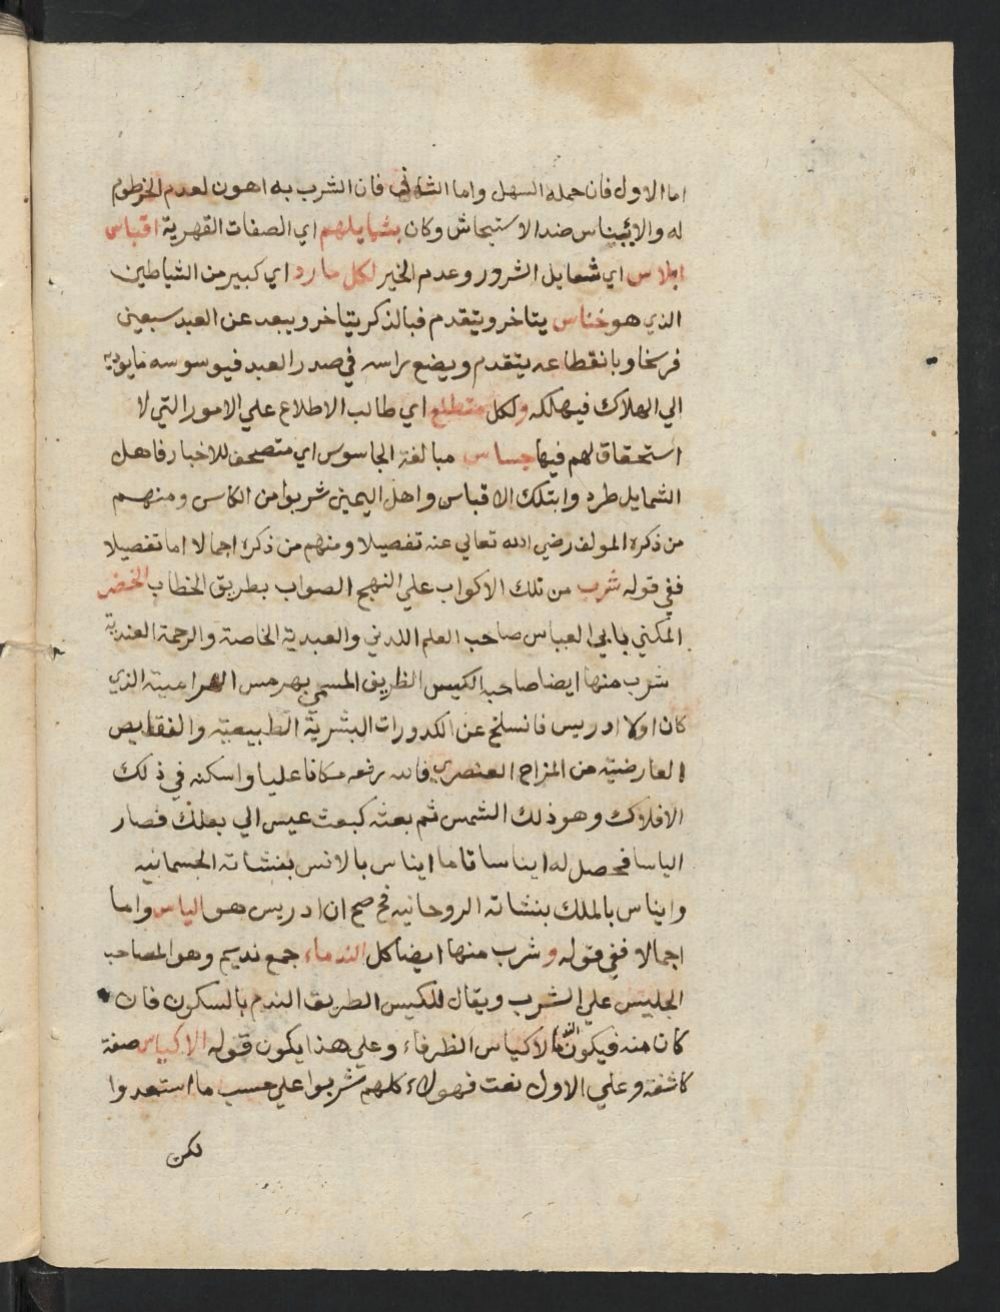 اما الاول فان حمله السهل واما الثاني فان الشرب به اهون لعدم الخرطوم
له والايناس ضد الاستيحاش وكان بشمايلهم اي الصفات القهرية اقباس
ابلاس اي شمايل الشرور وعدم الخير لكل مارد اي كبير من الشياطين
الذي هو خناس يتاخر ويتقدم فبالذكر يتاخر ويبعد عن العبد سبعين
فرسخا وبانقطاعه يتقدم ويضع راسه في صدر العبد فيوسوسه مايوديه
الي الهلاك فيهلكه ولكل متطلع اي طالب الاطلاع علي الامور التي لا
استحقاق لهم فيها جساس مبالغة الجاسوس اي متصحف للاخبار فاهل
الشمايل طرد وابتلك الاقباس واهل اليمين شربوا من الكاس ومنهم
من ذكره المولف رضي الله تعالي عنه تفصيلا ومنهم من ذكره اجمالا اما تفصيلا
ففي قوله شرب من تلك الاكواب علي النهج الصواب بطريق الخطاب الخضر
المكني بابي العباس صاحب العلم اللدني والعبدية الخاصة والرحمة العندية
شرب منها ايضا صاحب الكيس الظريف المسمي بهرمس الهرامسة الذي
كان اولا ادريس فانسلخ عن الكدورات البشرية الطبيعية والنقايص
العارضية من المزاج العنصري فالله رفعه مكانا عليا واسكنه في ذلك
الافلاك وهو ذلك الشمس ثم بعثه كبعث عيسي الي بعلك فصار
الياسا فحصل له ايناسا تاما ايناس بالانس بنشاته الجسمانيه
وايناس بالملك بنشاته الروحانيه فح صح ان ادريس هو الياس واما
اجمالا ففي قوله وشرب منها ايضا كل الندماء جمع نديم وهو المصاحب
الجليس علي الشرب ويقال للكيس الظريف الندم بالسكون فان
كان منه فيكون الاكياس الظرفاء وعلي هذا يكون قوله الاكياس صفة
كاشفة وعلي الاول نعت فهولاء كلهم شربوا علي حسب ما استعدوا
لكن